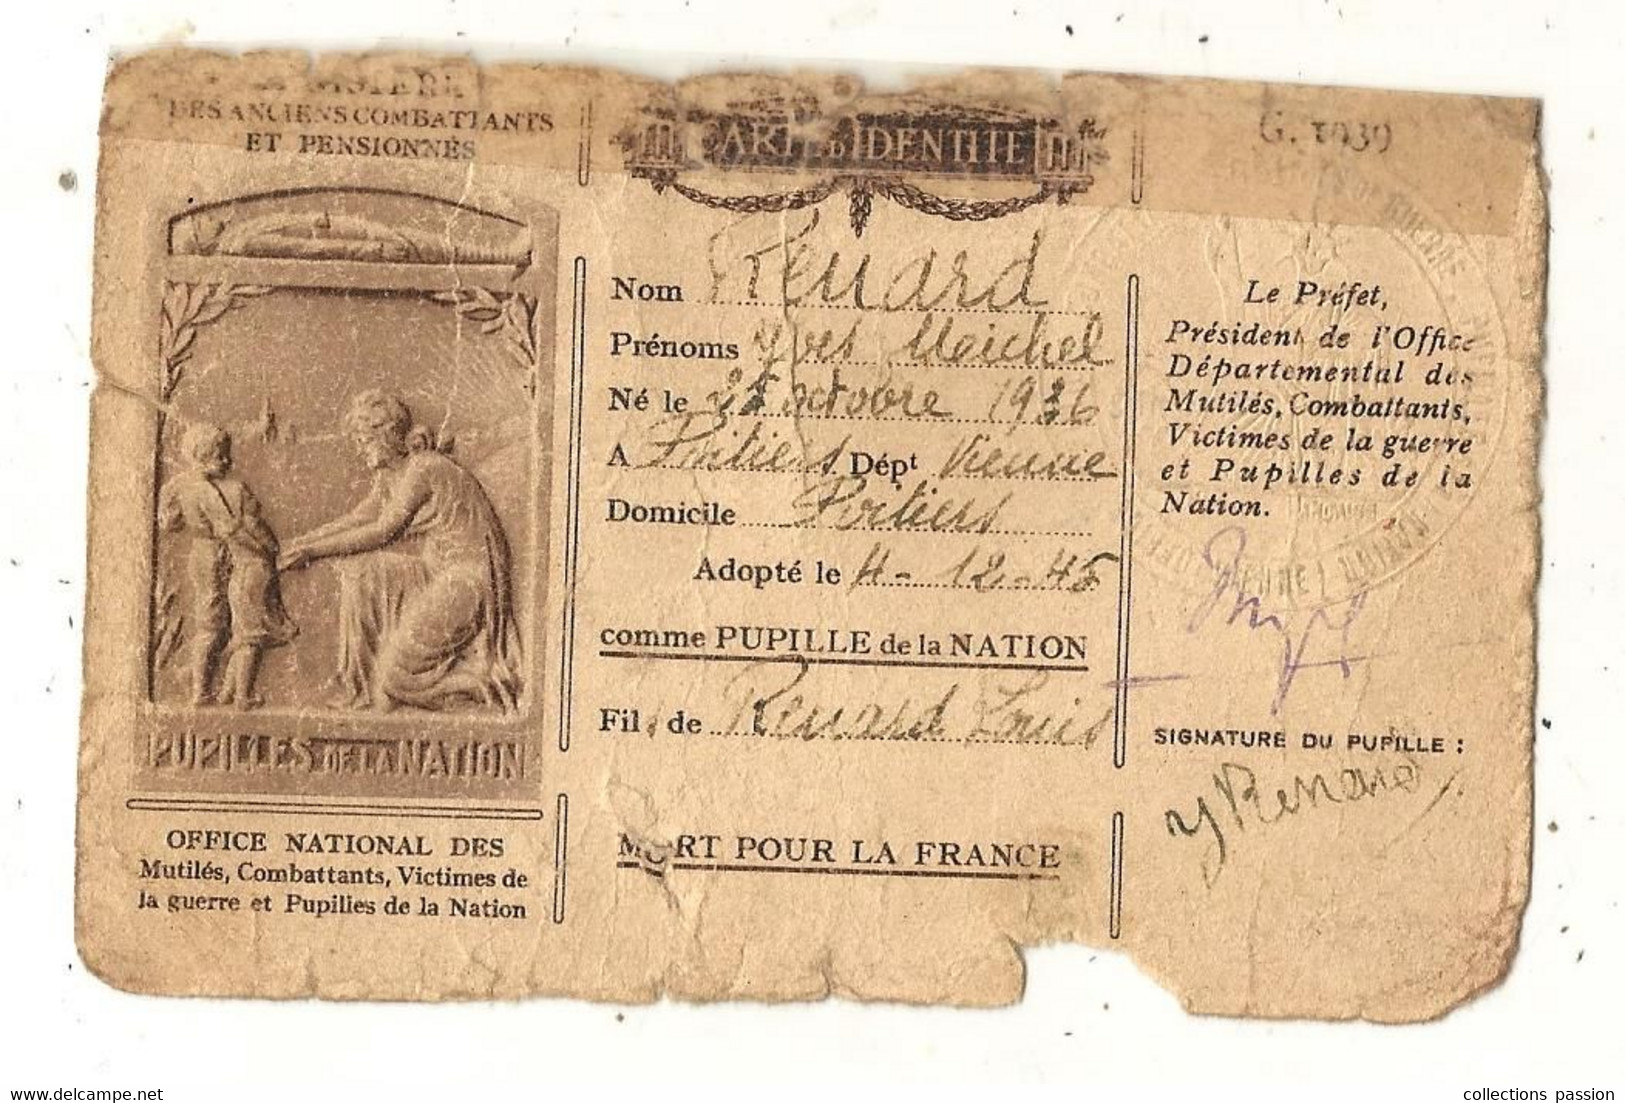 DES ANCIENS COMBATTANTS
ET PENSIONNÉS
PUPILLES DE LA NATION
OFFICE NATIONAL DES
Mutilés, Combattants, Victimes de
la guerre et Pupilles de la Nation
CARTE D'IDENTITE
Nom Renard
Prénoms Yves Meichel
Né le 25 octobre 1936
A Poitiers Dépt Vienne
Domicile Poitiers
Adopté le 4-12-45
comme PUPILLE de la NATION
Fils de Renard Louis
MORT POUR LA FRANCE
G. 1939
Le Préfet,
Président de l'Office
Départemental des
Mutilés, Combattants,
Victimes de la guerre
et Pupilles de la
Nation.
SIGNATURE DU PUPILLE :
Y Renard
delcampe.net
collections passion